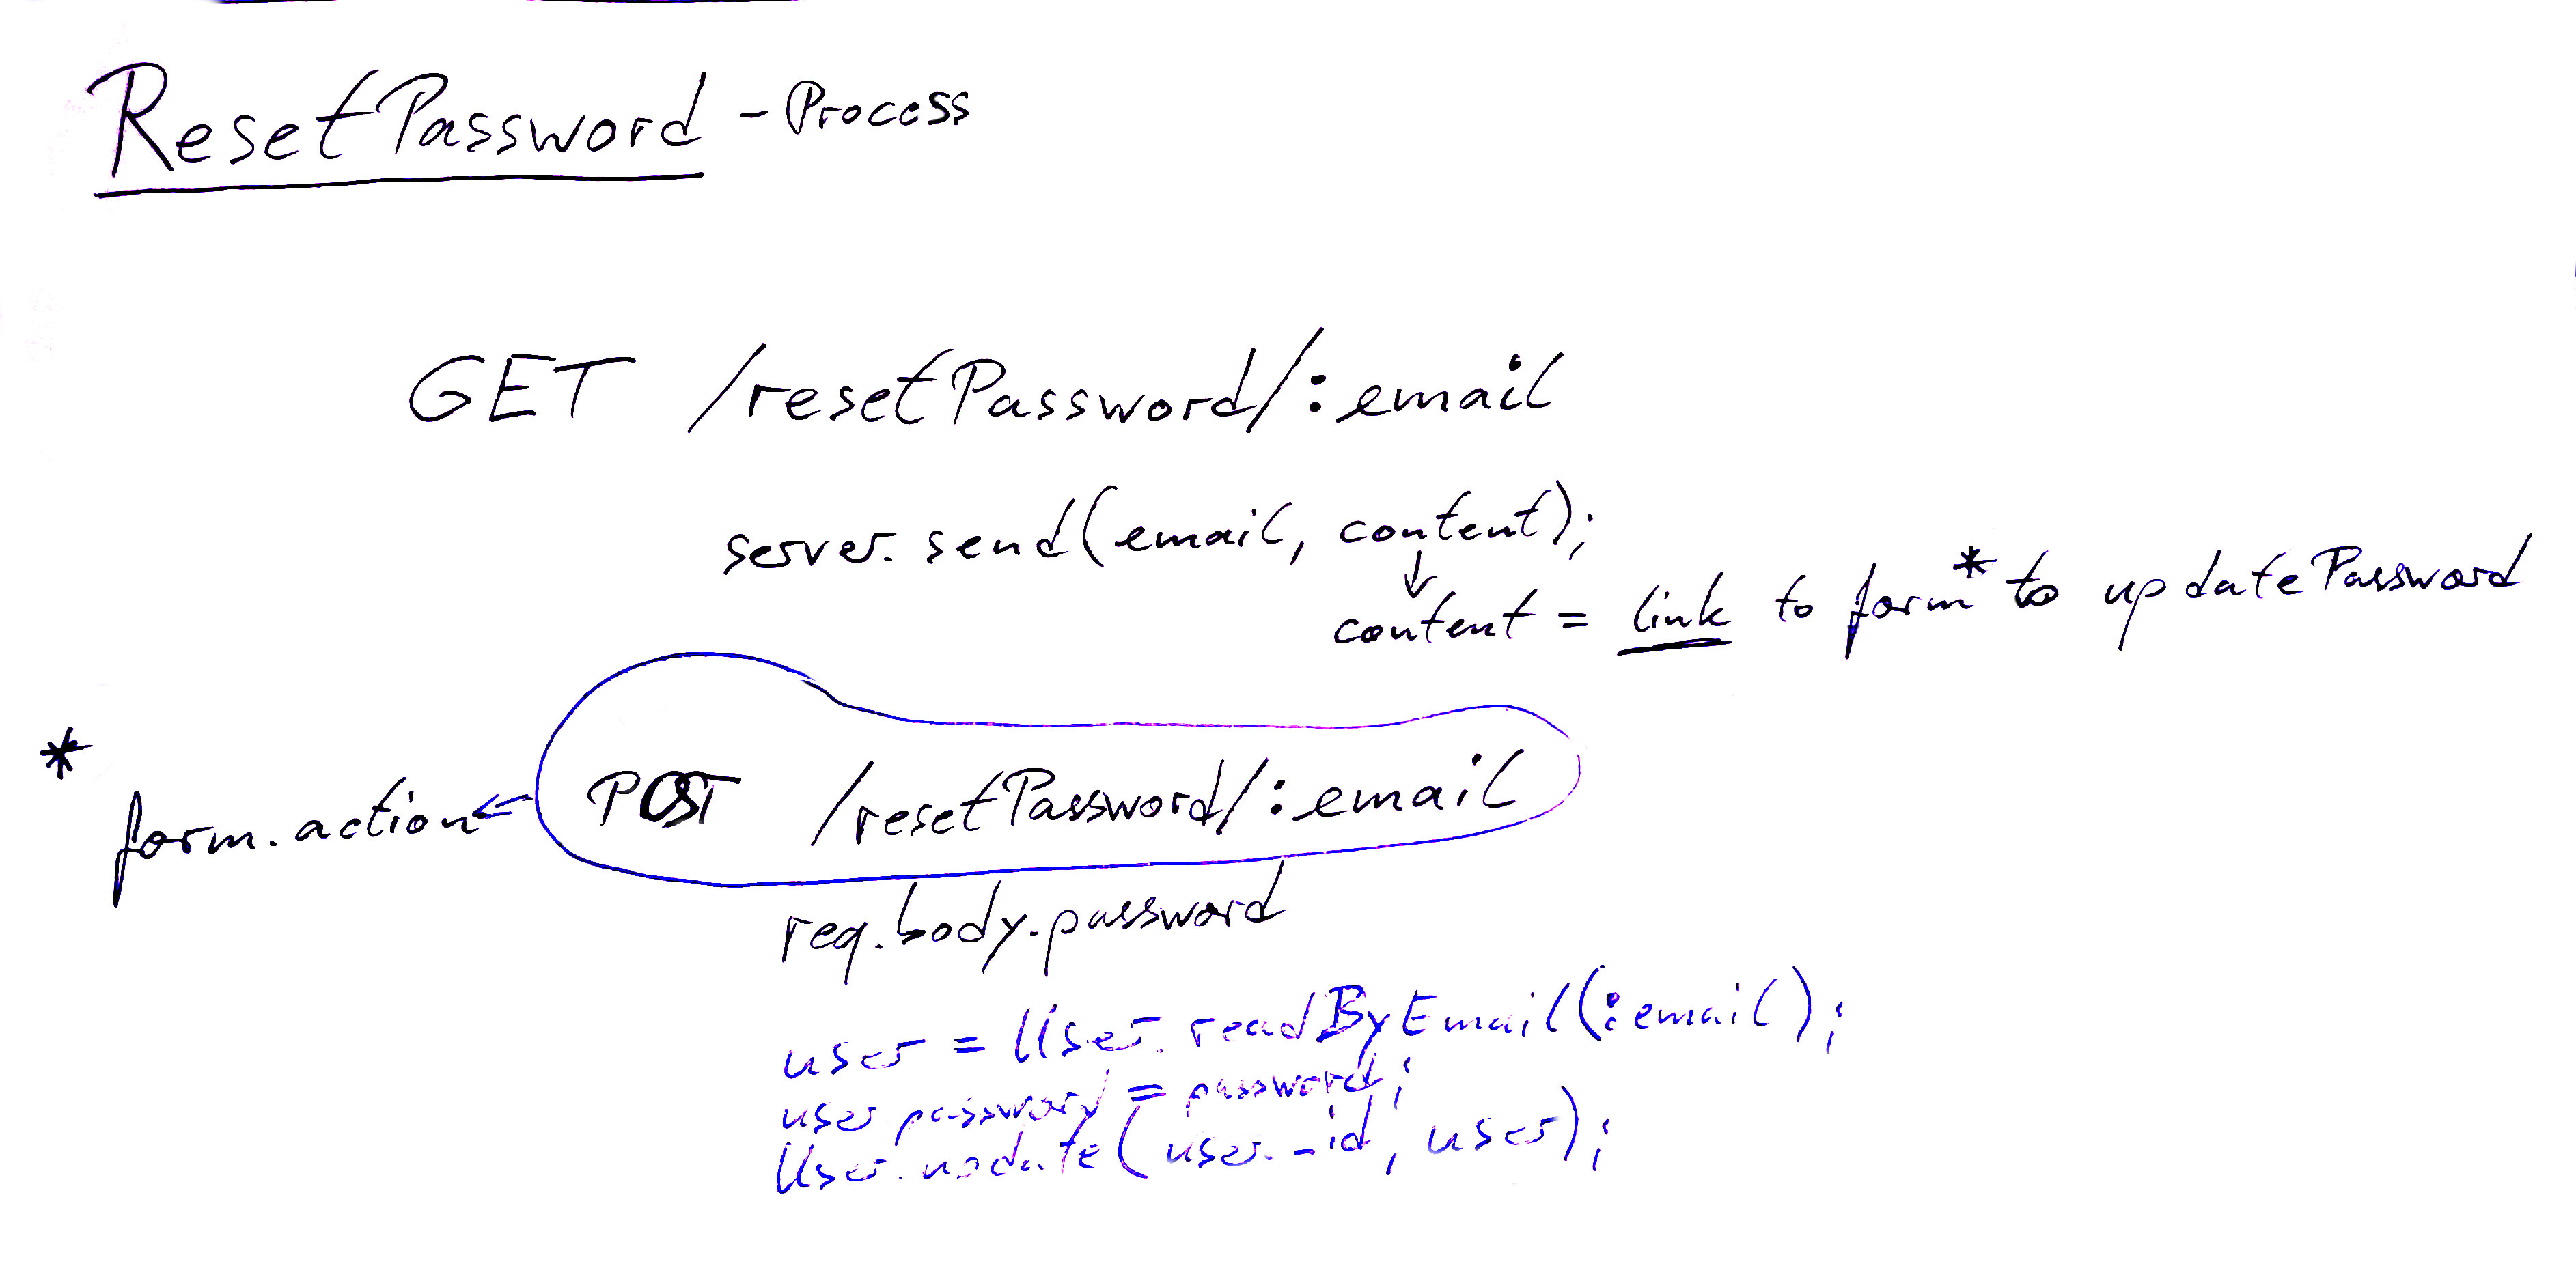 ResetPassword - Process
GET /resetPassword/:email
server.send(email, content);
↓
content = link to form* to updatePassword
*
form.action ← POST /resetPassword/:email
req.body.password
user = User.readByEmail(:email);
user.password = password;
User.update(user._id, user);